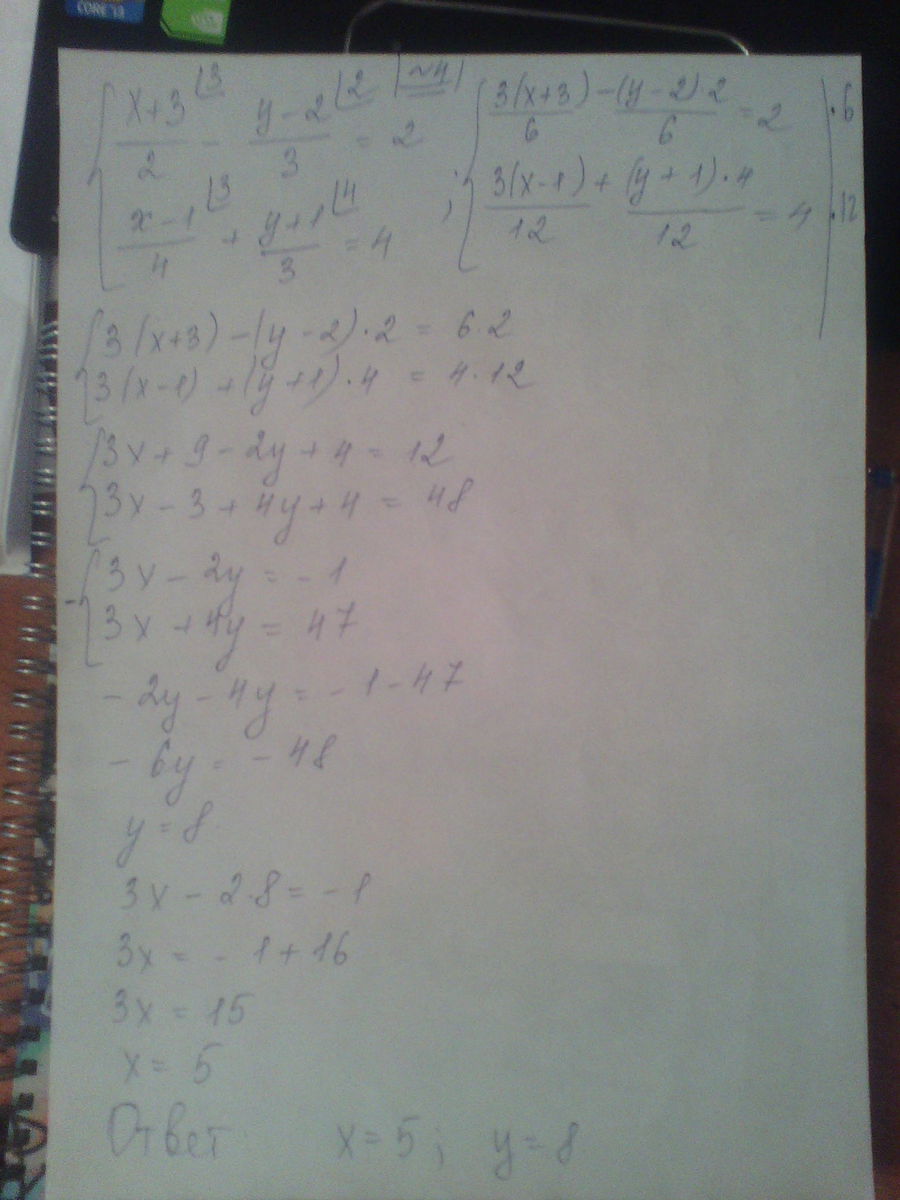 CORE i3
{ (x+3)/2 ⌊3 - (y-2)/3 ⌊2 = 2 |~4|
{ (x-1)/4 ⌊3 + (y+1)/3 ⌊4 = 4 ;
{ 3(x+3)/6 - (y-2)·2/6 = 2 | ·6
{ 3(x-1)/12 + (y+1)·4/12 = 4 | ·12
{ 3(x+3) - (y-2)·2 = 6·2
{ 3(x-1) + (y+1)·4 = 4·12
{ 3x + 9 - 2y + 4 = 12
{ 3x - 3 + 4y + 4 = 48
-{ 3x - 2y = -1
{ 3x + 4y = 47
- 2y - 4y = -1 - 47
- 6y = - 48
y = 8
3x - 2·8 = -1
3x = -1 + 16
3x = 15
x = 5
Ответ x = 5; y = 8